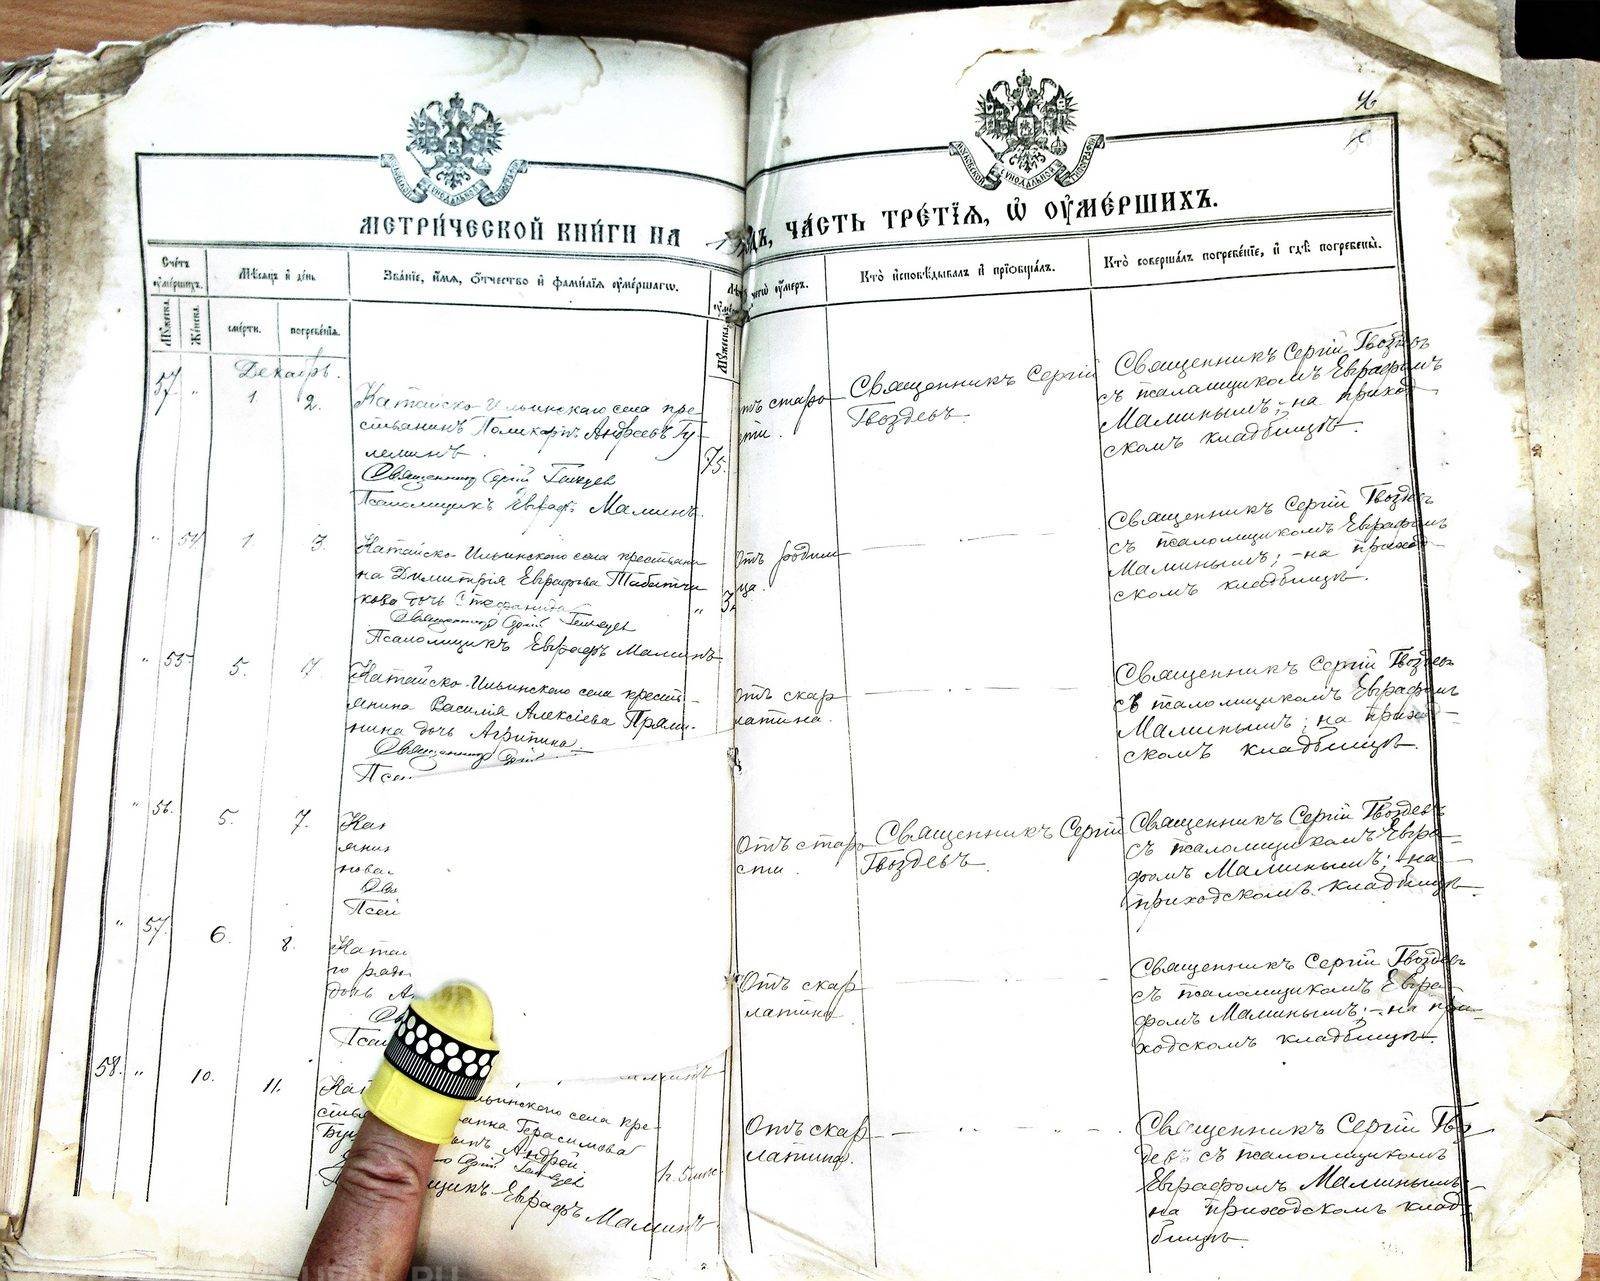 МОСКОВСКОЙ СѴНОДАЛЬНОЙ ТИПОГРАФІИ
МОСКОВСКОЙ СѴНОДАЛЬНОЙ ТИПОГРАФІИ
МЕТРИ́ЧЕСКОЙ КНИ́ГИ НА ГОДЪ, ЧА́СТЬ ТРЕ́ТІЯ, Ѡ ОУ҆МЕ́РШИХЪ.
Сче́тъ оу҆ме́ршихъ.
Мѣ́сяцъ и҆ де́нь
Зва́ніе, и҆́мя, ѻ҆́тчество и҆ фами́лія оу҆ме́ршагѡ.
чегѡ̀ оу҆́меръ.
Кто̀ и҆сповѣ́дывалъ и҆ прїѡбща́лъ.
Кто̀ соверша́лъ погребе́ніе, и҆ гдѣ̀ погребены̀.
Му́жеска.
Же́нска.
сме́рти.
погребе́нія.
Му́жеска.
Декабрь.
57. " 1 2.
Катайско-Ильинскаго села кре-
стьянинъ Поликарпъ Андреевъ Гу-
леминъ.
Священникъ Сергій Гвоздев
Псаломщикъ Евграф. Малинъ.
75.
отъ старо
сти.
Священникъ Сергій
Гвоздевъ.
Священникъ Сергій Гвоздевъ
съ псаломщикомъ Евграфомъ
Малинымъ; на приход
скомъ кладбищѣ.
" 54 1 3.
Катайско-Ильинского села крестьяни
на Димитрія Евграфова Табатчи
кова дочь Стефанида
Священникъ Сергій Гвоздев
Псаломщикъ Евграфъ Малинъ
отъ родим
ца.
Священникъ Сергій Гвоздевъ
съ псаломщикомъ Евграфомъ
Малинымъ; - на приход
скомъ кладбищѣ.
" 55. 5.
Катайско-Ильинского села кресть-
янина Василія Алексіева Прями-
нина дочь Агрипина.
Священникъ Сергій
Псал
отъ скар
латина.
Священникъ Сергій Гвоздевъ
съ псаломщикомъ Евграфомъ
Малинымъ; на приход-
скомъ кладбищѣ.
" 56. 5. 7.
Кат
янин
нова
Свя
Псал
Отъ старо
сти.
Священникъ Сергій
Гвоздевъ.
Священникъ Сергій Гвоздевъ
съ псаломщикомъ Евгра-
фомъ Малинымъ; - на
приходскомъ кладбищѣ
" 57. 6. 8.
Катай
го ряд
дочь А
Свя
Псал
Отъ скар
латина
Священникъ Сергій Гвоздевъ
съ псаломщикомъ Евгра
фомъ Малинымъ; - на при-
ходскомъ кладбищѣ.
Малинъ
58. " 10. 11.
Кат льинского села кре-
стья Герасимова
Андрей.
Сергій Гвоздев
щикъ Евграфъ Малинъ
Отъ скар
латина.
Священникъ Сергій Гвоз
девъ съ псаломщикомъ
Евграфомъ Малинымъ
на приходскомъ клад-
бищѣ.